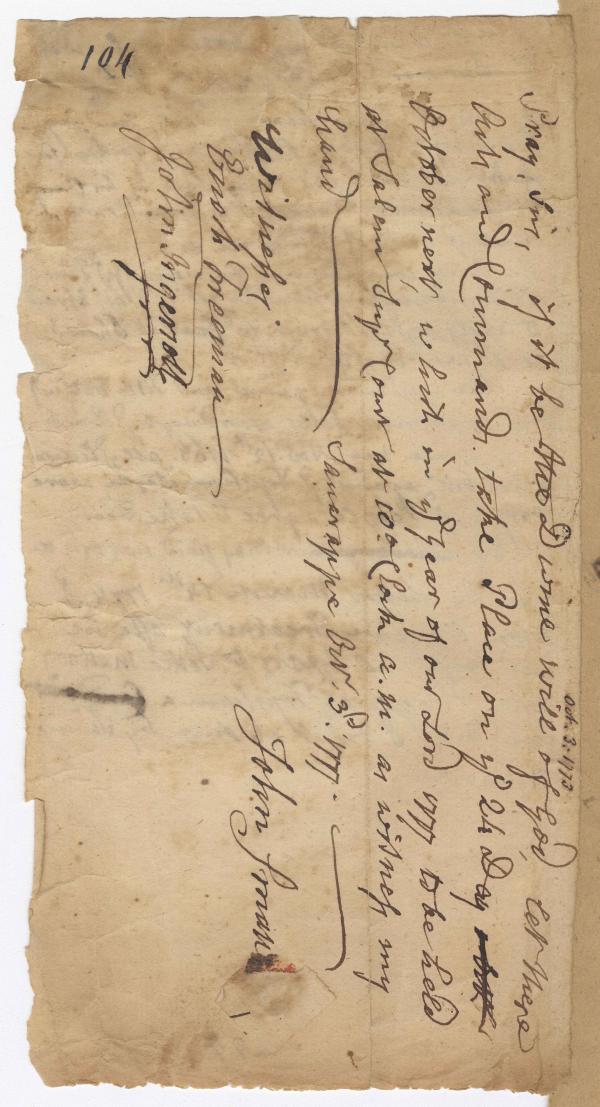 104
Oct. 3. 1773
Pray, Sir, if it be the Divine will of God, let there
Acts and Commands take Place on yᵉ 24 Day
October next, which in yᵉ year of our Lord 1777 to be held
at Salem Supʳ Court at 10 o Clock a.m. as witness my
hand
Octʳ. 3ᵈ. 1777.
John Smith
Witness.
Enoch Freeman
John Ingersoll